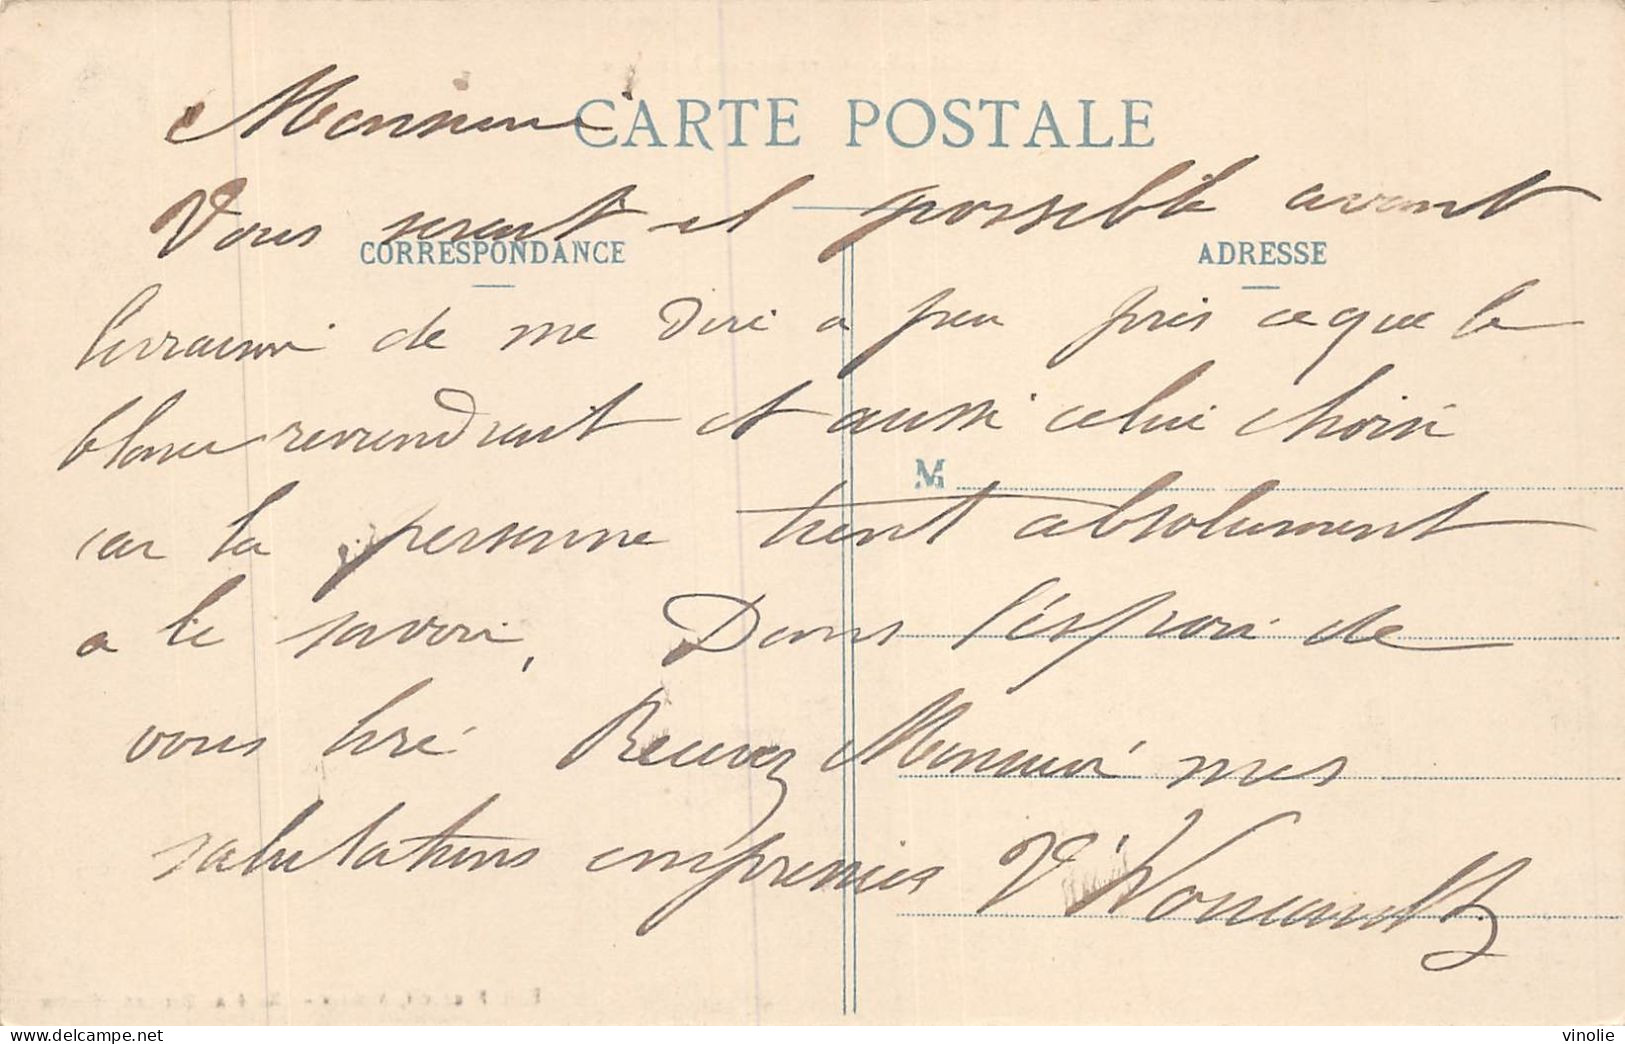 Monsieur
CARTE POSTALE
Vous serait il possible avant
CORRESPONDANCE
ADRESSE
livraison de me dire a peu près ce que le
blanc reviendrait et aussi celui choisi
M
car la personne tient absolument
a le savoir, Dans l'éspoir de
vous lire Recevez Monsieur mes
salutations empressées V
vinolie